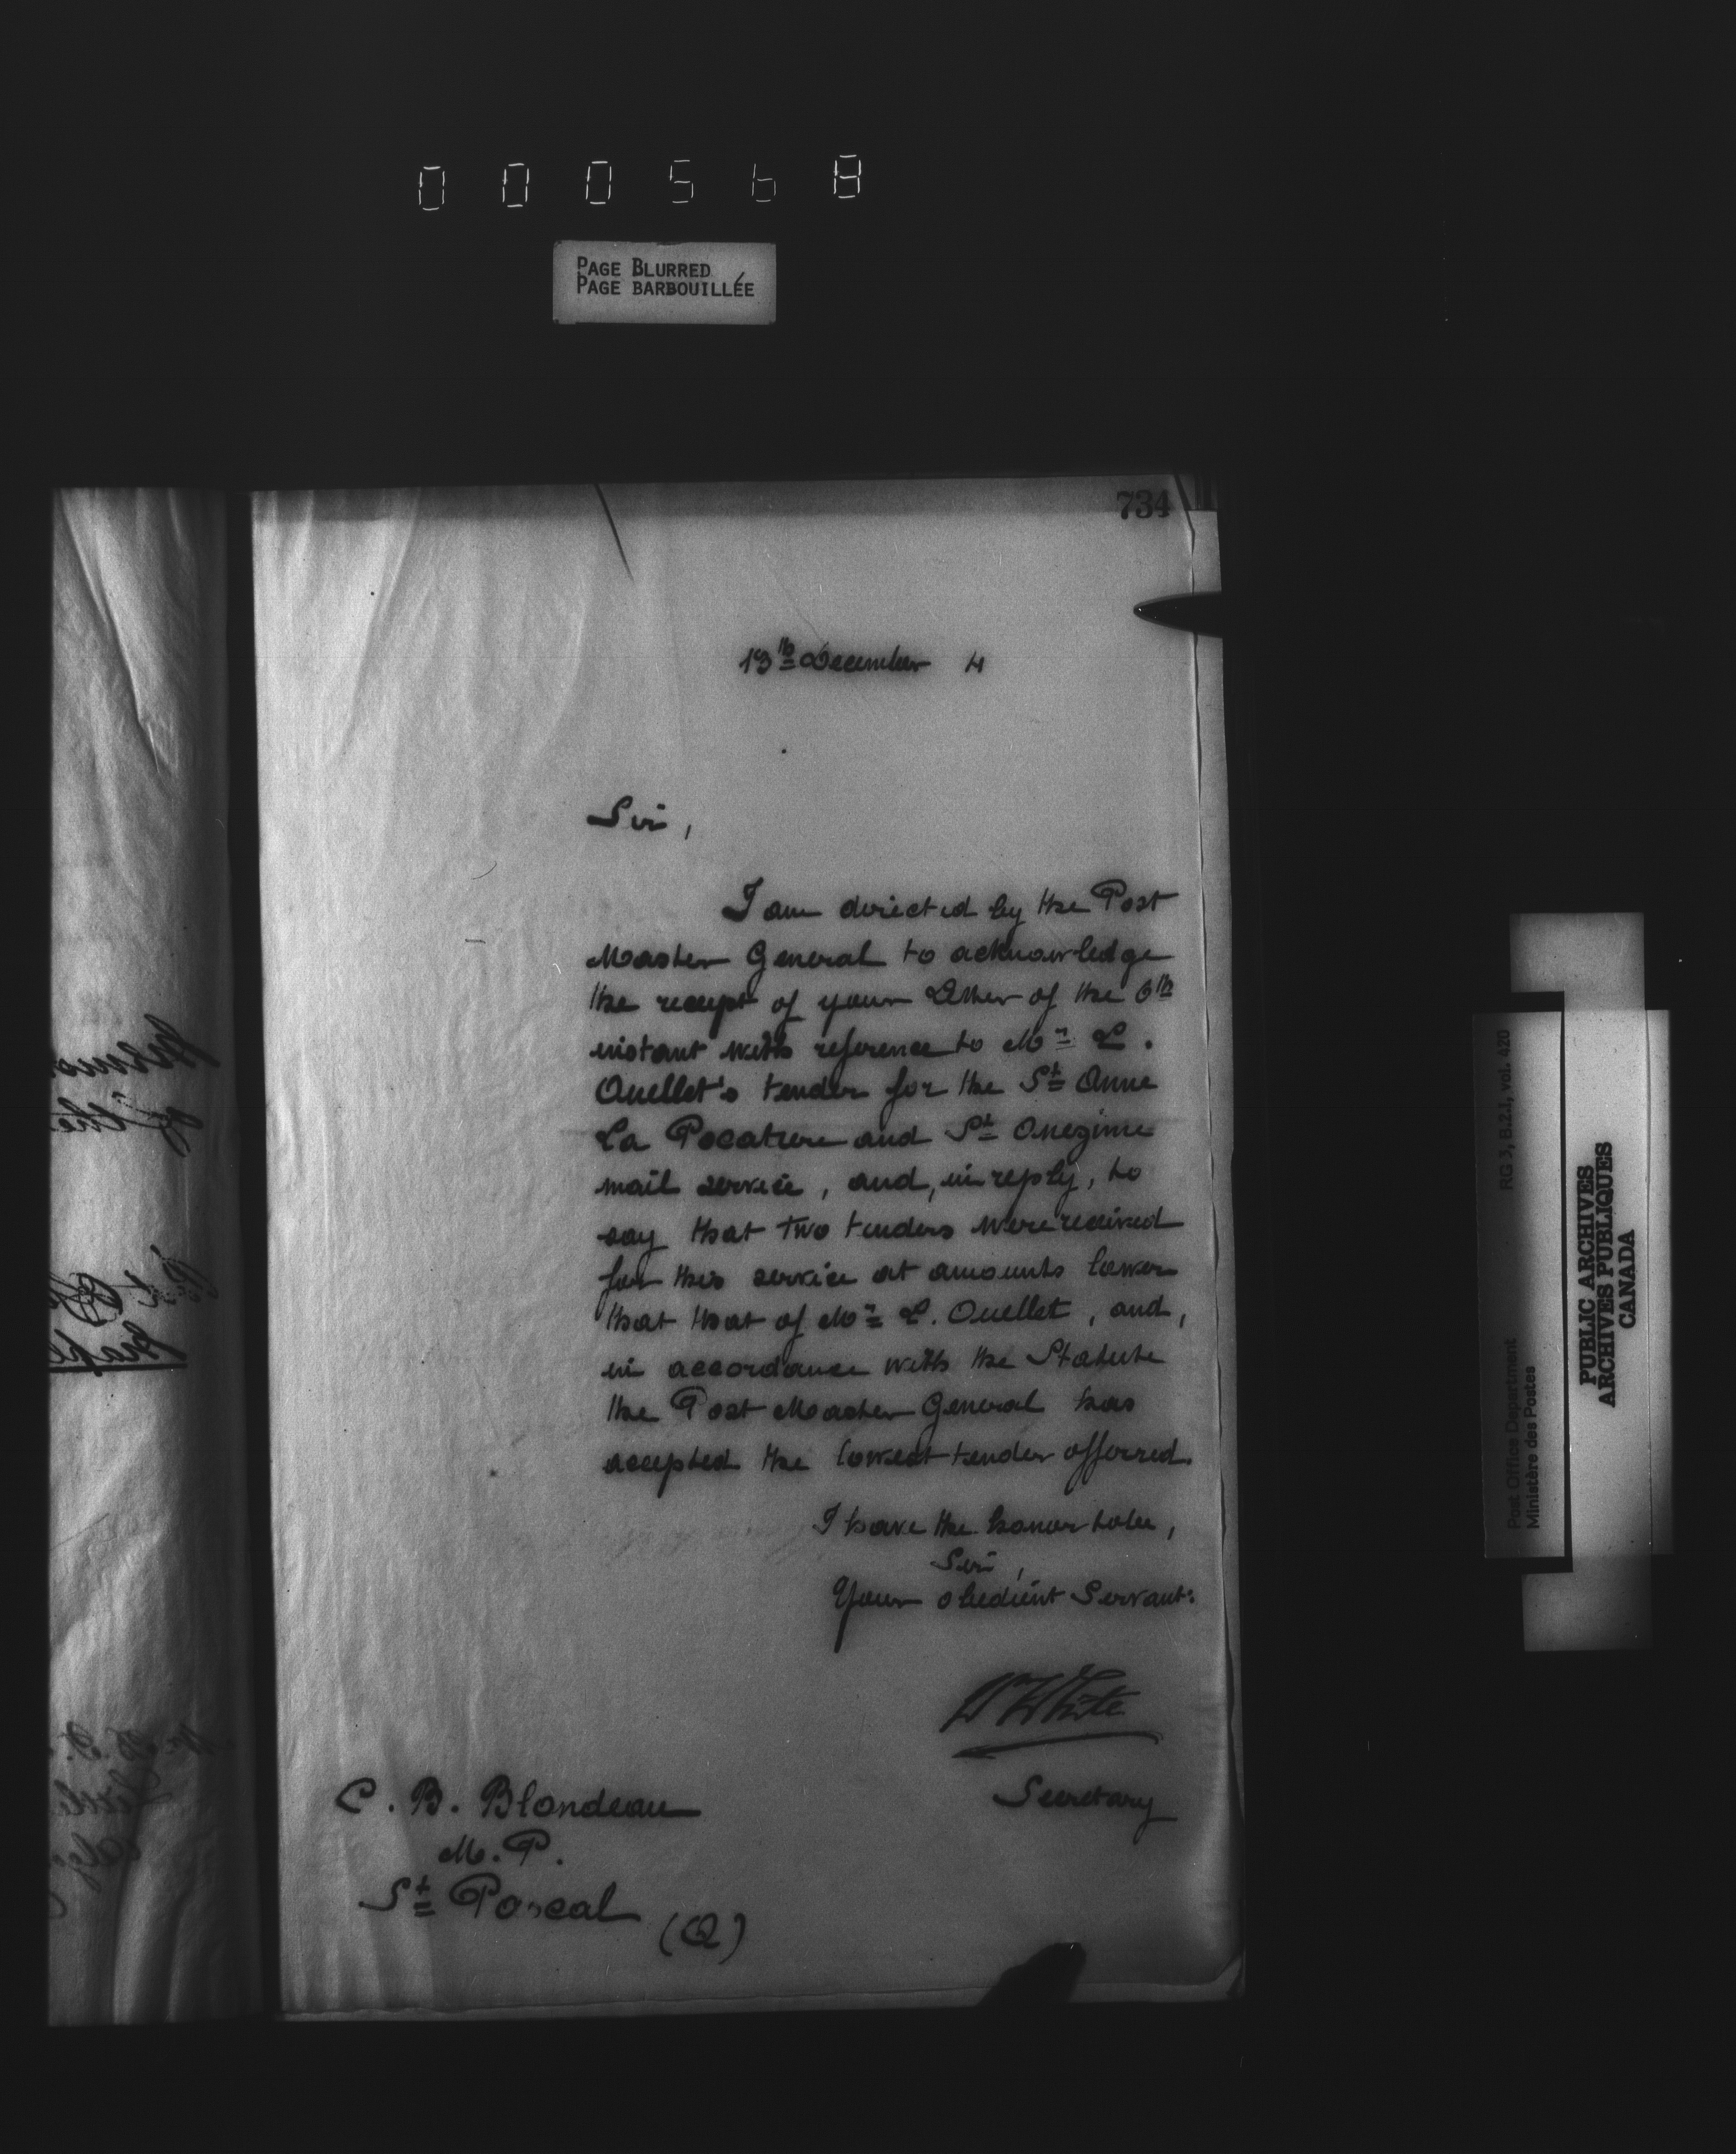 000568
PAGE BLURRED
PAGE BARBOUILLÉE
734
13th December 4
Sir,
I am directed by the Post
Master General to acknowledge
the receipt of your letter of the 6th
instant with reference to Mr L.
Ouellet's tender for the St Anne
La Pocatiere and St Onezime
mail service, and, in reply, to
say that two tenders were received
for this service at amounts lower
that that of Mr L. Ouellet, and,
in accordance with the Statute
the Post Master General has
accepted the lowest tender offerred.
I have the honor to be,
Sir,
Your obedient Servant:
W White
Secretary
C. B. Blondeau
M. P.
St Pascal
(Q)
of the
RG 3, B.21, vol. 420
Post Office Department
Ministère des Postes
PUBLIC ARCHIVES
ARCHIVES PUBLIQUES
CANADA